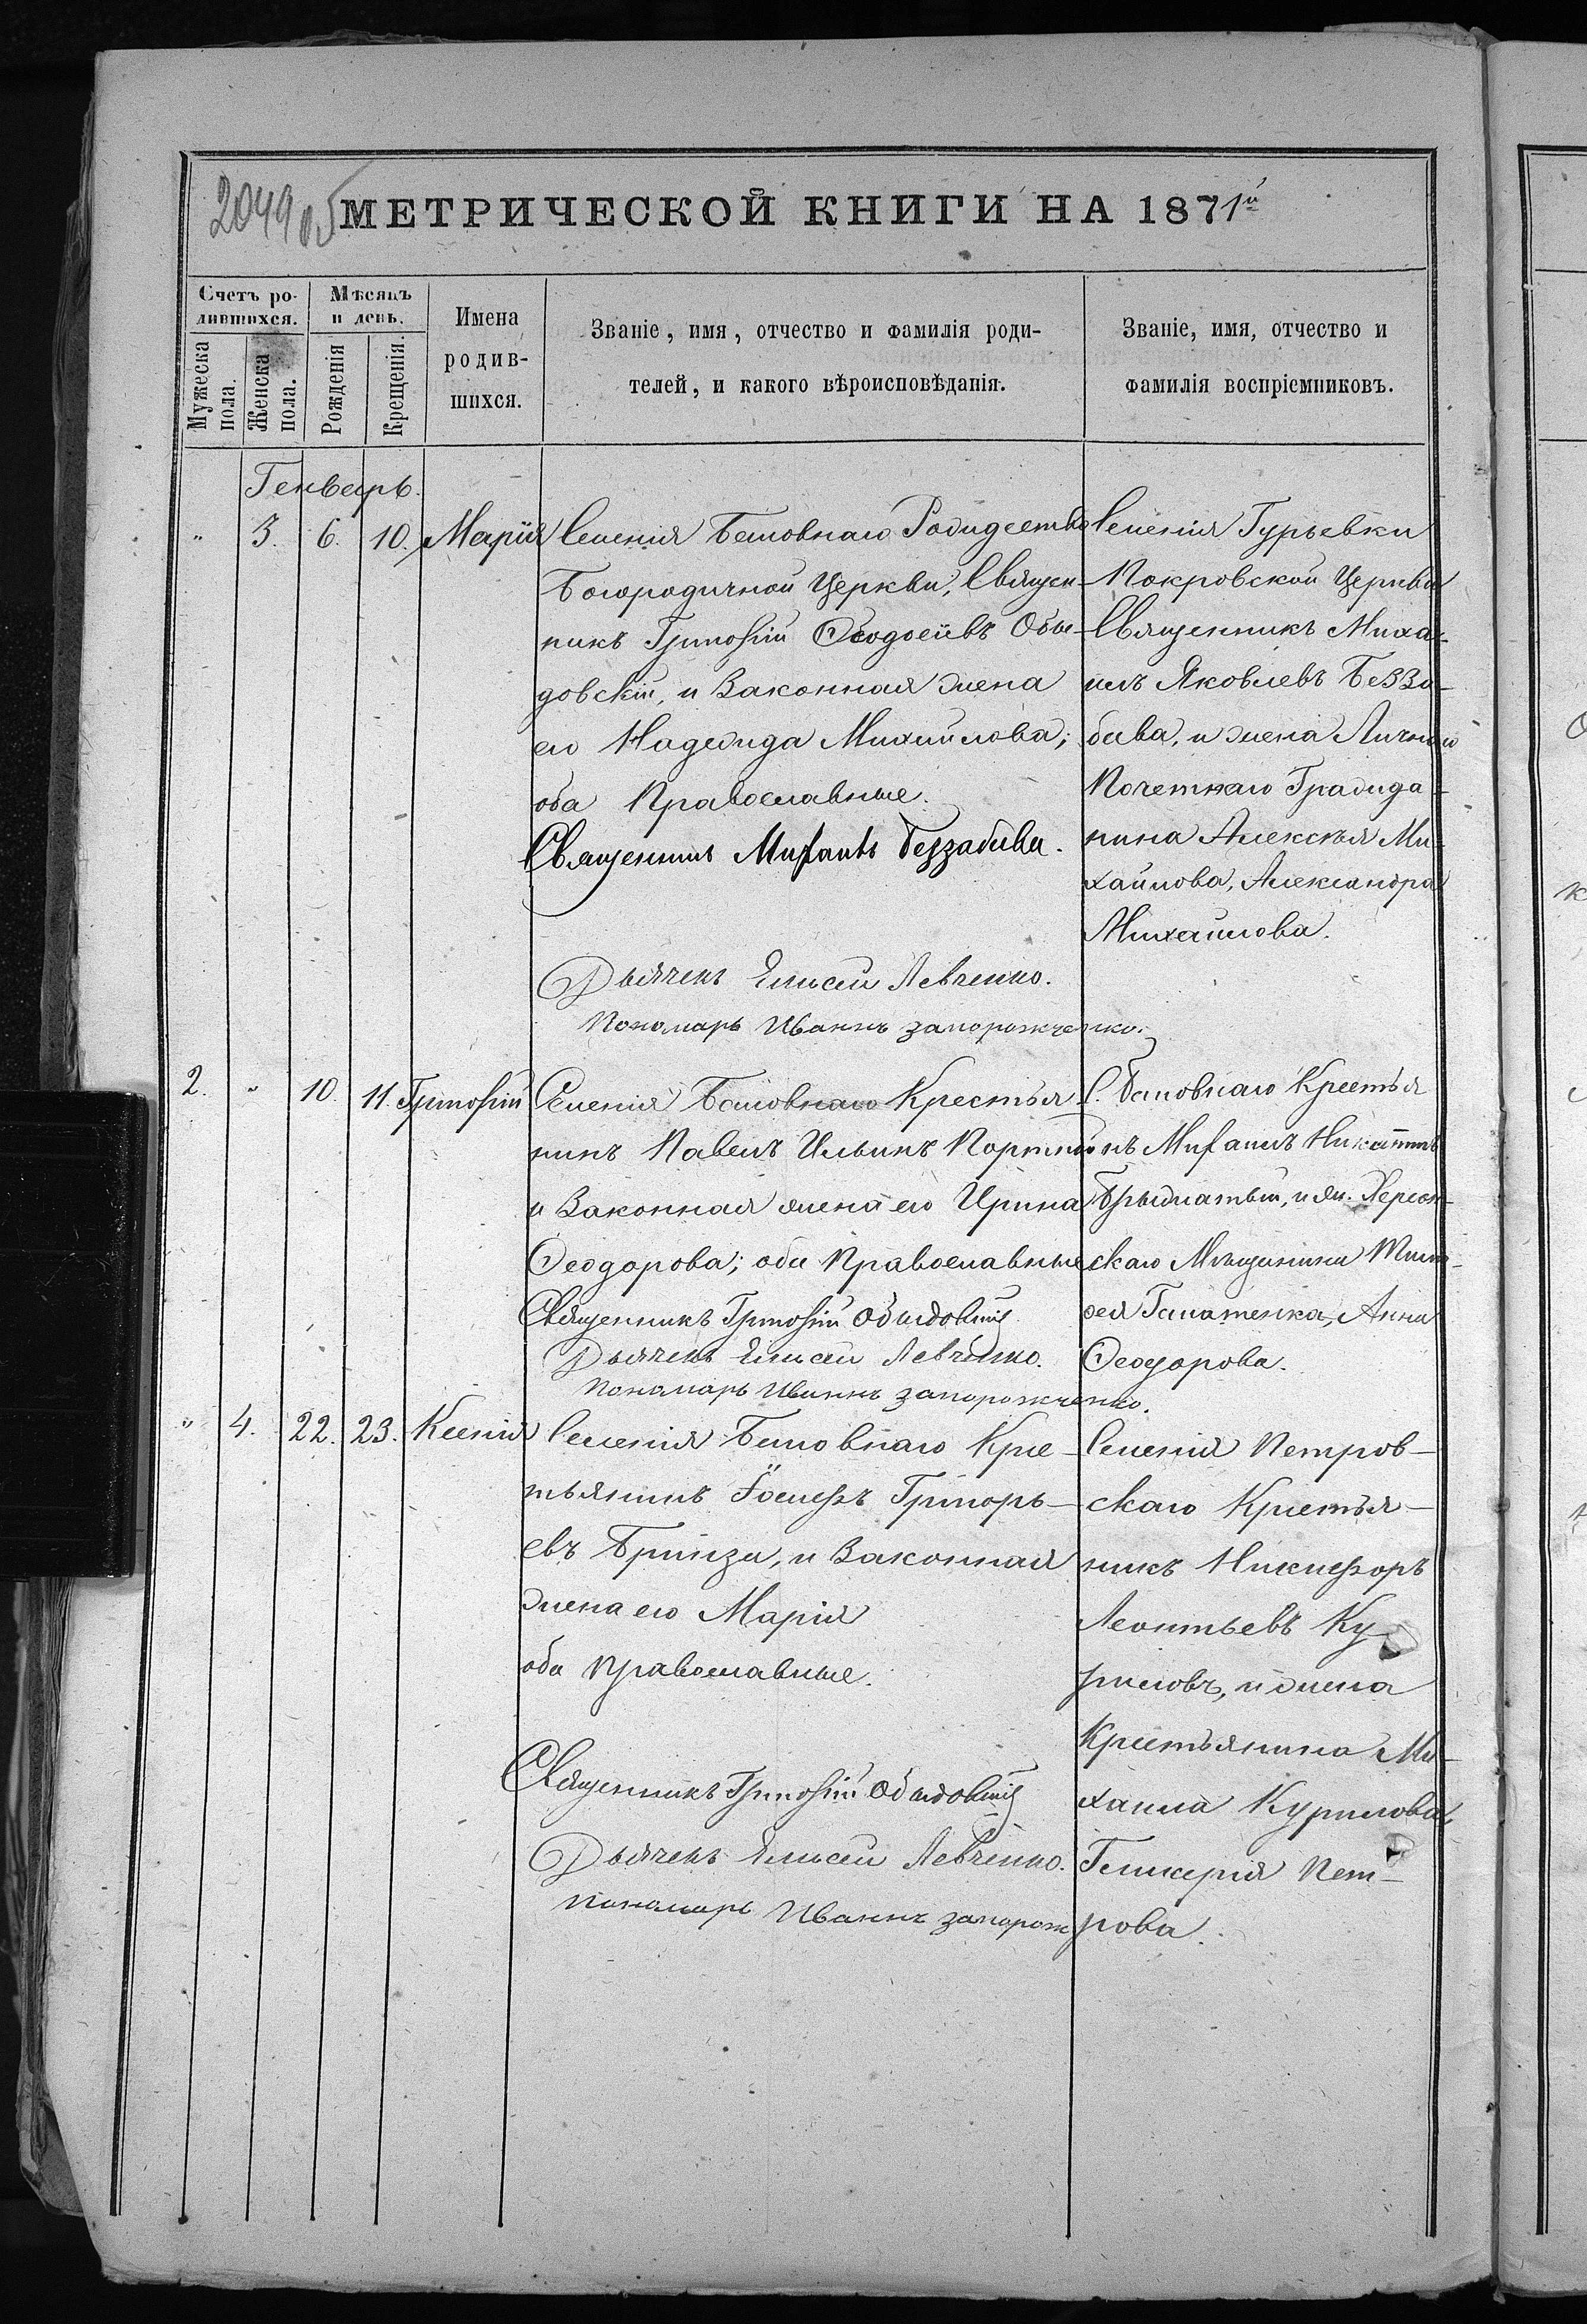 2049 об
МЕТРИЧЕСКОЙ КНИГИ НА 1871й
Счетъ ро-
дившихся.
Мѣсяцъ
и день.
Мужеска
пола.
Женска
пола.
Рожденія
Крещенія.
Имена
родив-
шихся.
Званіе, имя, отчество и фамилія роди-
телей, и какого вѣроисповѣданія.
Званіе, имя, отчество и
фамилія воспріемниковъ.
Генварь.
" 3. 6. 10. Марія
Селенія Баловнаго Рождество
Богородичной Церкви, Священ-
никъ Григорій Ѳеодосіевъ Обы-
довскій, и Законная жена
его Надежда Михайлова;
оба Православные.
Священникъ Михаилъ Беззабава.
Дьячекъ Елисей Левченко.
Пономарь Иваннъ запорожченко.
Селенія Гурьевки
Покровской Церкви
Священникъ Миха-
илъ Яковлевъ Безза-
бава, и жена Личнаго
Почетнаго Гражда-
нина Алексѣя Ми-
хайлова, Александра
Михайлова.
2. " 10. 11. Григорій
Селенія Баловнаго Крестья
нинъ Павелъ Ильинъ Портной
и Законная жена его Ирина
Ѳеодорова; оба Православные
Священникъ Григорій Обыдовскій
Дьячекъ Елисей Левченко.
Пономарь Иваннъ запорожченко.
С. Баловнаго Крестья
нъ Михаилъ
и жен. Херсон-
скаго Мѣщанина Тимо-
ѳея Анна
Ѳеодорова.
" 4. 22. 23. Ксенія
Селенія Баловнаго Кре-
тьянинъ Іосифъ Григорь-
евъ Бринза, и Законная
жена его Марія
оба православные.
Священникъ Григорій Обыдовскій
Дьячекъ Елисей Левченко.
Пономарь Иваннъ запорож
Селенія Петров-
скаго Крестья-
нинъ Никифоръ
Леонтьевъ Ку-
риловъ, и жена
Крестьянина Ми-
хаила Курилова,
Гликерія Пет-
рова.